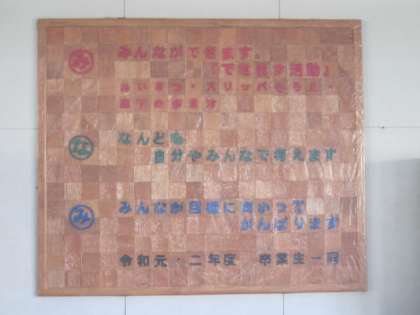 み みんなができます。
『できます活動』
あいさつ・スリッパそろえ・
な なんども
自分やみんなで考えます
み みんなが目標に向かって
がんばります
令和元・二年度 卒業生一同